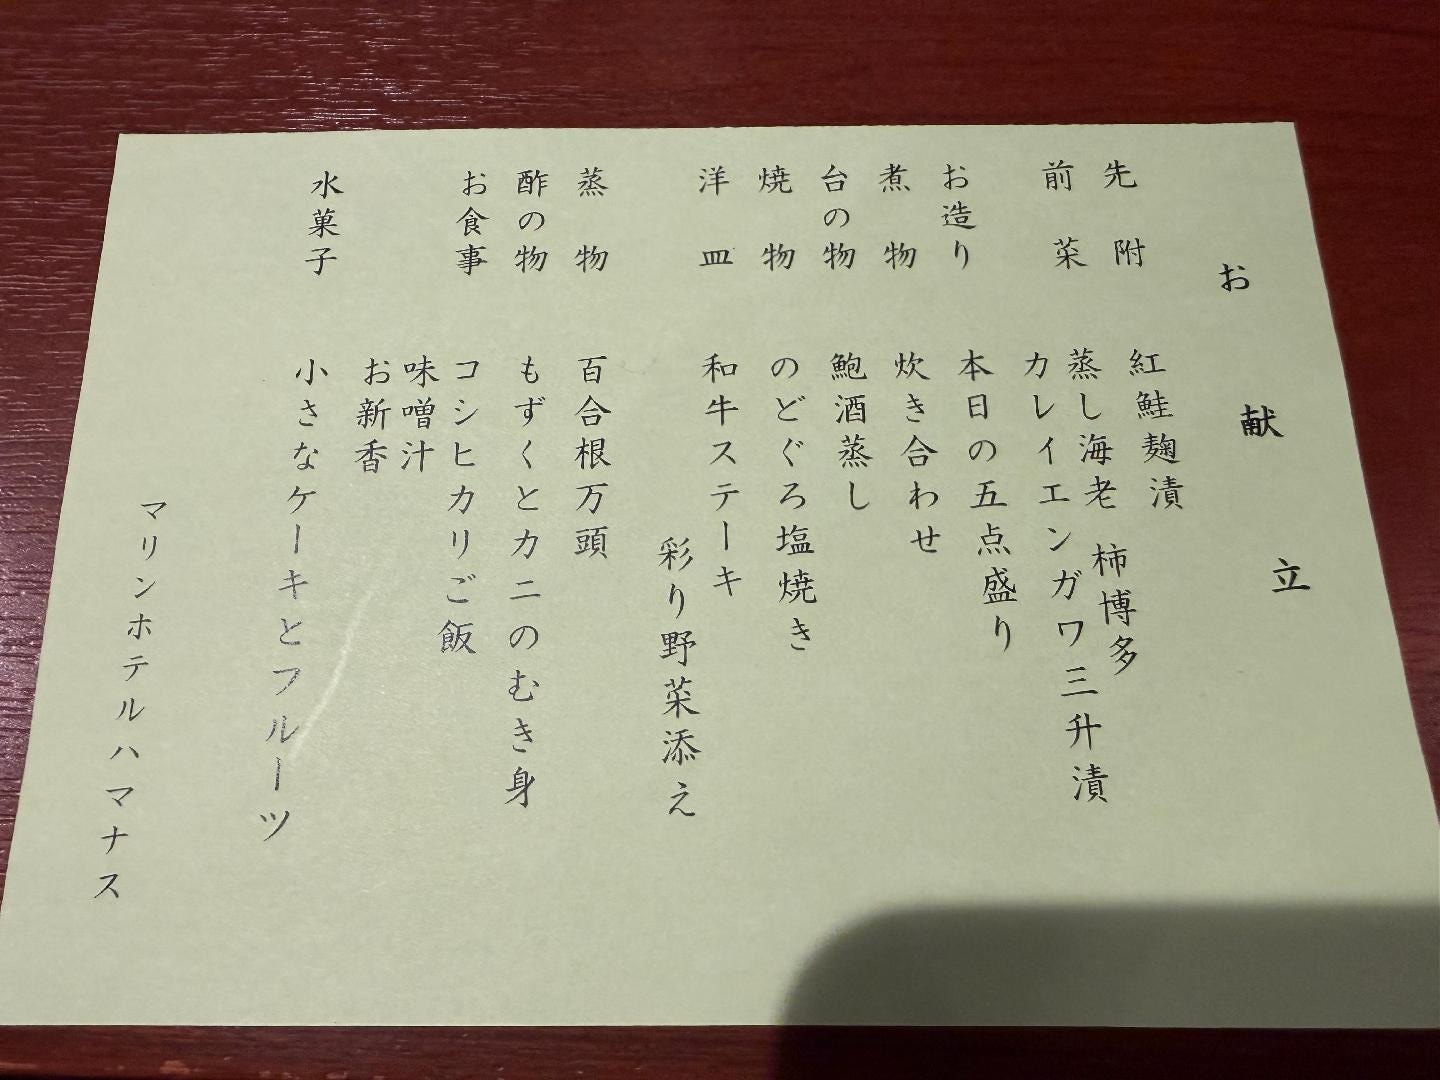 お献立
先附　紅鮭麹漬
前菜　蒸し海老　柿博多
カレイエンガワ三升漬
お造り　本日の五点盛り
煮物　炊き合わせ
台の物　鮑酒蒸し
焼物　のどぐろ塩焼き
洋皿　和牛ステーキ
彩り野菜添え
蒸物　百合根万頭
酢の物　もずくとカニのむき身
お食事　コシヒカリご飯
味噌汁
お新香
水菓子　小さなケーキとフルーツ
マリンホテルハマナス